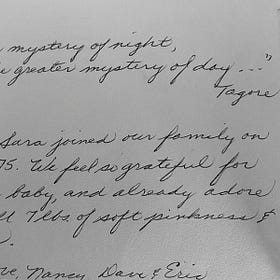 mystery of night,
greater mystery of day ..."
Tagore
Sara joined our family on
75. We feel so grateful for
baby, and already adore
7 lbs. of soft pinkness &
Nancy Dave & Eric